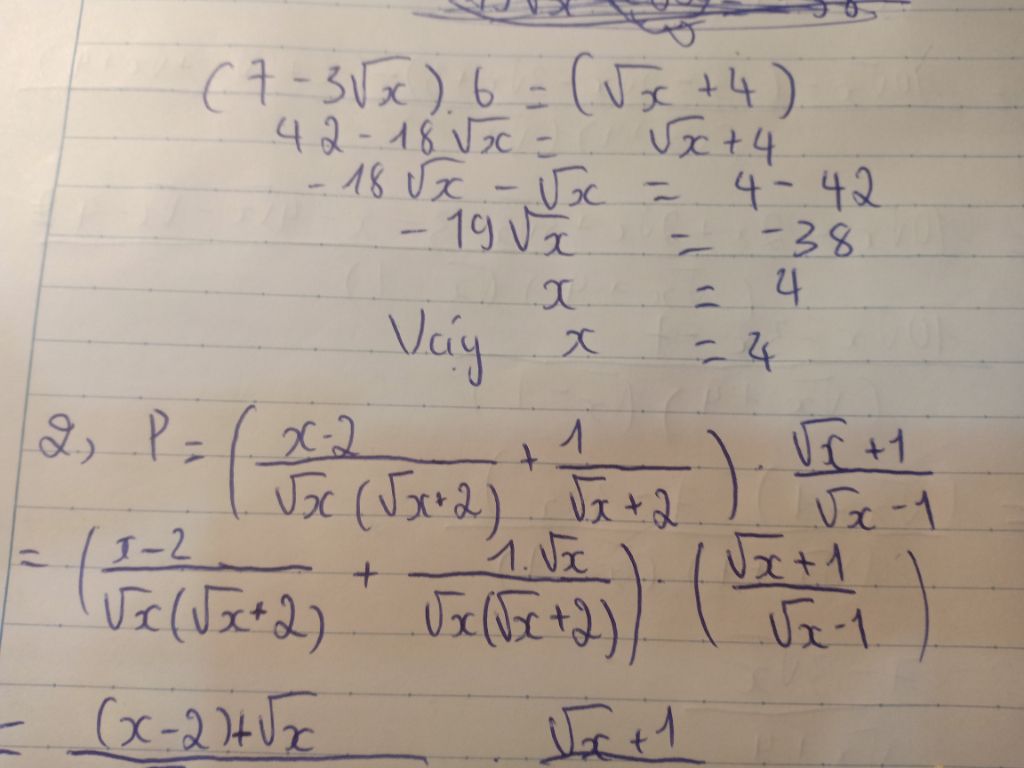 (7 - 3√x).6 = (√x + 4)
42 - 18√x = √x + 4
- 18√x - √x = 4 - 42
- 19√x = -38
x = 4
Vậy x = 4
2, P = (x-2 / √x(√x+2) + 1 / √x+2) . √x+1 / √x-1
= (x-2 / √x(√x+2) + 1.√x / √x(√x+2)) . (√x+1 / √x-1)
= (x-2)+√x . √x+1